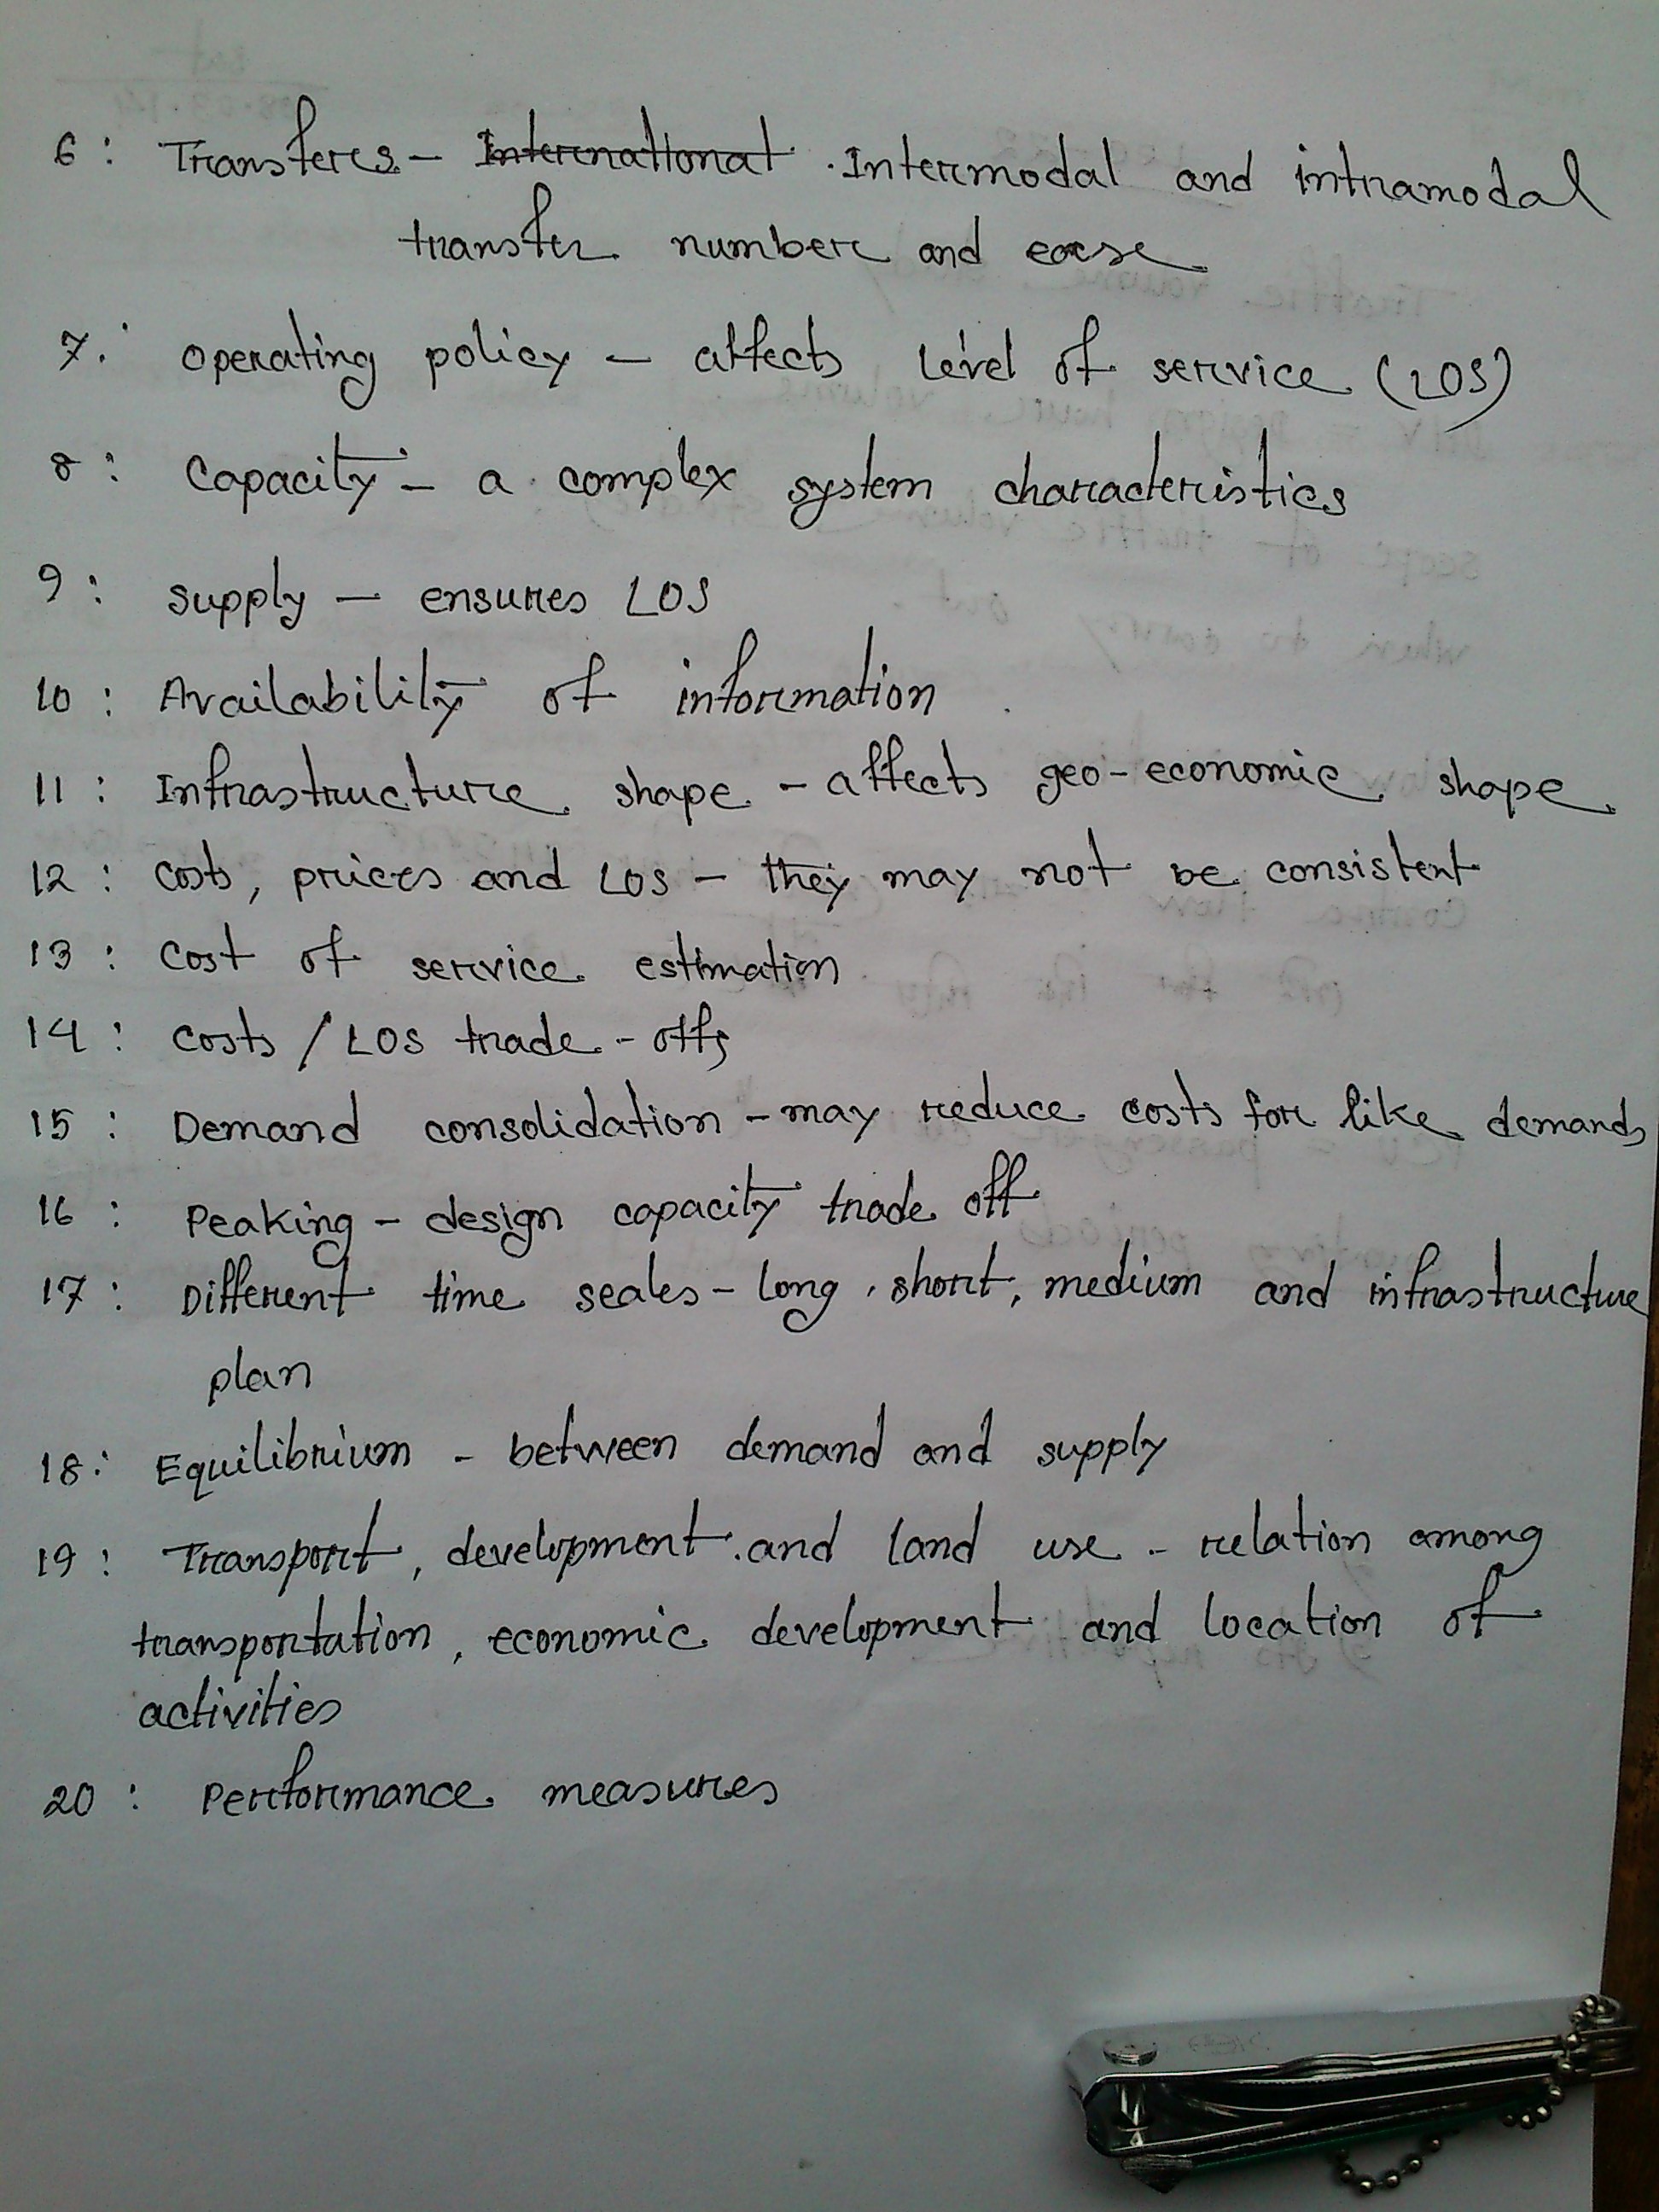 6: Transfers - International Intermodal and intramodal
transfer number and ease
7: Operating policy - affects level of service (LOS)
8: Capacity - a complex system characteristics
9: supply - ensures LOS
10: Availability of information
11: Infrastructure shape - affects geo-economic shape
12: costs, prices and LOS - they may not be consistent
13: cost of service estimation
14: costs / LOS trade-offs
15: Demand consolidation - may reduce costs for like demands
16: Peaking - design capacity trade off
17: Different time scales - long, short, medium and infrastructure
plan
18: Equilibrium - between demand and supply
19: Transport, development and land use - relation among
transportation, economic development and location of
activities
20: Performance measures